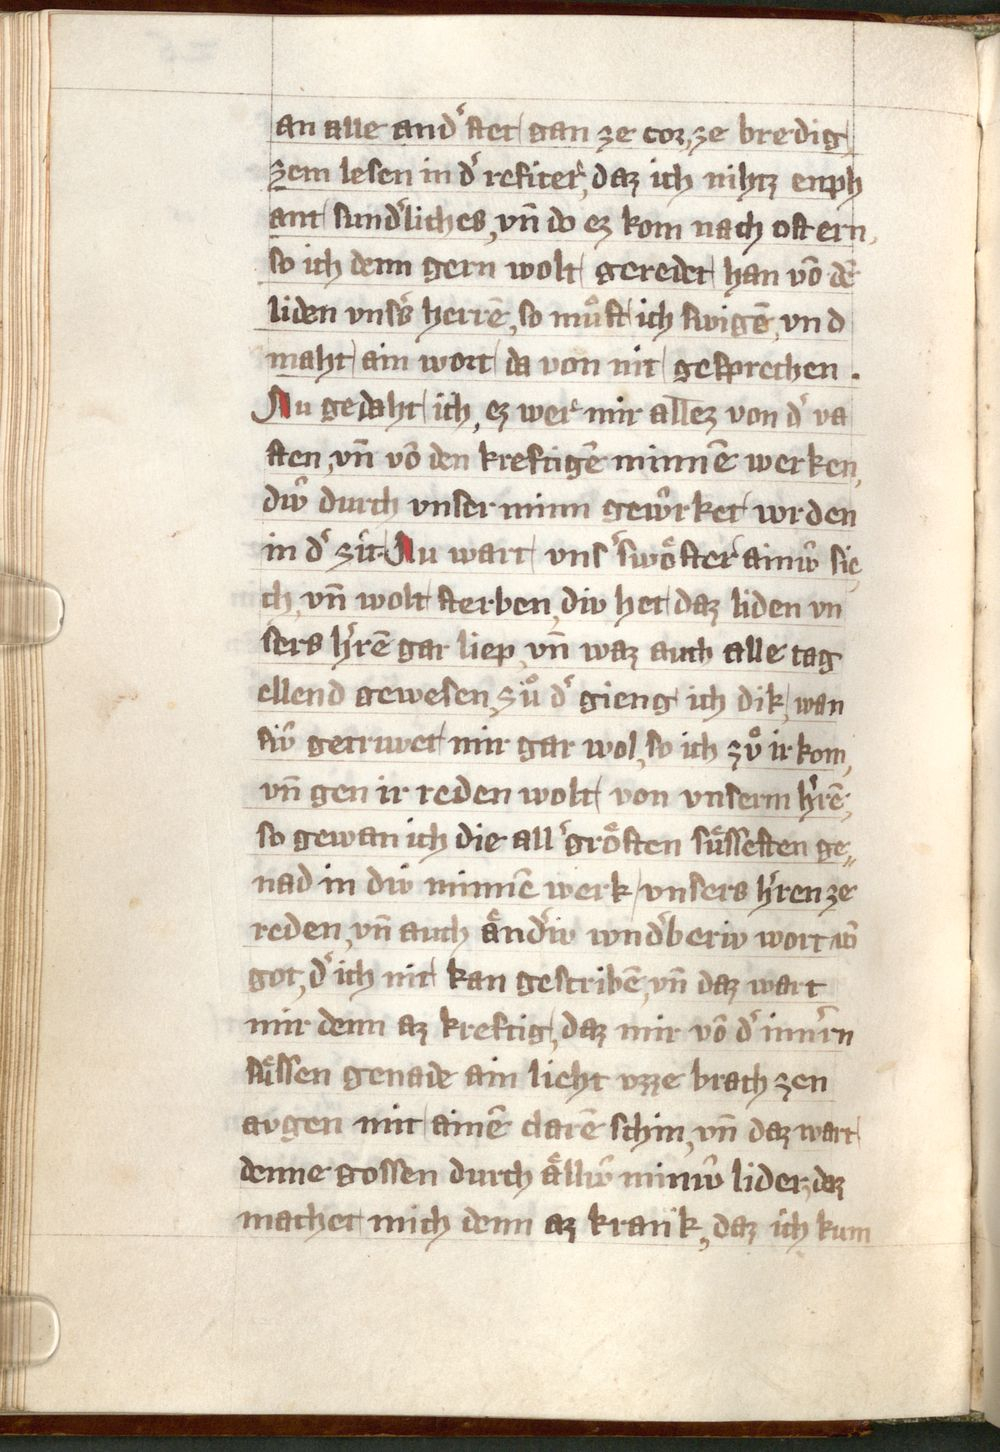 an alle andˀ stet gan ze cor, ze bredig,
zem lesen in dˀ refiter, daz ich nihtz enph
ant sundˀliches, vn̄ do ez kom nach ostern,
so ich denn gern wolt geredet han vō dē
liden vnsˀs herrē, so mu̍ͦst ich swigē, vnd
maht ain wort da von nit gesprechen.
Nu gedaht ich, ez wer mir allez von dˀ va
sten, vn̄ vō den kreftigē minnē werken,
diŵ durch vnser minn gewͤrket wrden
in dˀ zit. Nu wart vnsˀ swöster ainiŵ sie
ch, vn̄ wolt sterben, diw het daz liden vn
sers hˀrē gar liep, vn̄ waz auch alle tag
ellend gewesen, zuͦ dˀ gieng ich dik, wan
siŵ getriwet mir gar wol, so ich zvͦ ir kom,
vn̄ gen ir reden wolt von vnserm hˀrē,
so gewan ich die allˀ grösten süssesten ge„
nad in diw minnē werk vnsers hˀren ze
reden, vn̄ auch ändˀiw wndˀberiw wort vō
got, dˀ ich nit kan gescribē, vn̄ daz wart
mir denn az kreftig, daz mir vō dˀ innˀn
süssen genade ain licht vzze brach zen
avgen mit ainē clarē schin, vn̄ daz wart
denne gossen durch älliŵ miniŵ lider, daz
machet mich denn az krank, daz ich kum